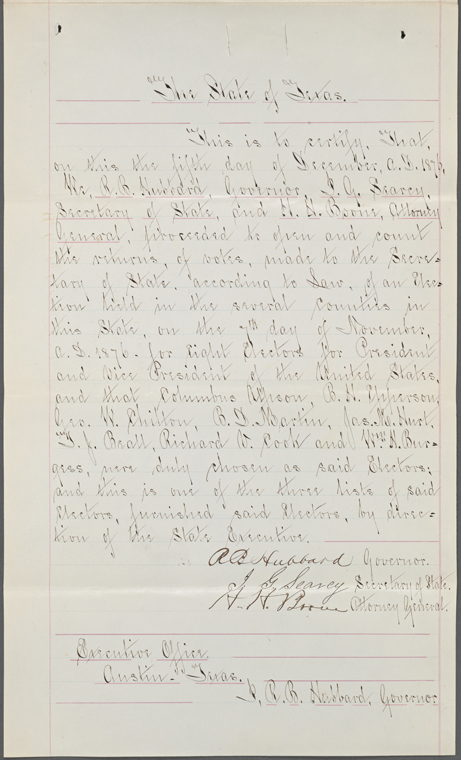 The State of Texas.
This is to certify, That,
on this the fifth day of December, A.D. 1876,
We, R.B. Hubbard Governor, I.G. Searcy,
Secretary of State, and H.H. Boone, Attorney
General, proceeded to open and count
the returns, of votes, made to the Secre-
tary of State, according to Law, of an Elec-
tion held in the several Counties in
this State, on the 7th day of November,
A.D. 1876. for Eight Electors for President
and Vice President of the United States,
and that Columbus Upson, B.H. Epperson,
Geo. W. Chilton, B.D. Martin, Jas. M. Hurt,
T.J. Beall, Richard V. Cook and Wm. H. Bur-
gess, were duly chosen as said Electors;
and this is one of the three lists of said
Electors, furnished said Electors, by direc-
tion of the State Executive.
R B Hubbard Governor.
I G Searcy Secretary of State.
H. H. Boone Attorney General.
Executive Office
Austin- Texas.
I, R.B. Hubbard, Governor